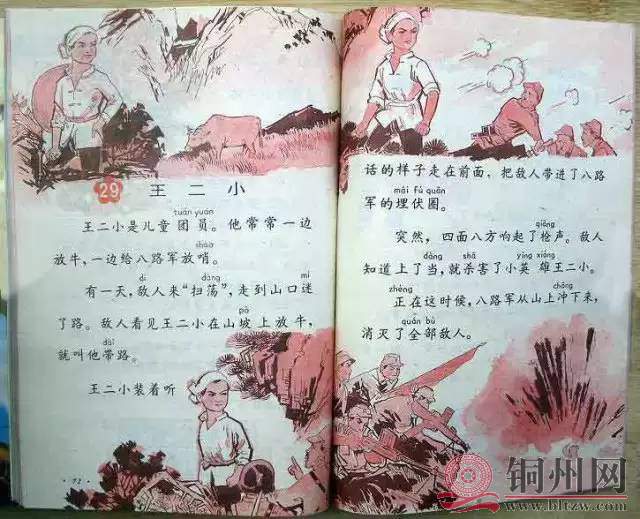 29 王二小
tuán yuán
王二小是儿童团员。他常常一边
shào
放牛，一边给八路军放哨。
dí dàng mí
有一天，敌人来“扫荡”，走到山口迷
pō
了路。敌人看见王二小在山坡上放牛，
dài
就叫他带路。
王二小装着听
·72·
话的样子走在前面，把敌人带进了八路
mái fú quān
军的埋伏圈。
qiāng
突然，四面八方响起了枪声。敌人
dàng shā yīng xióng
知道上了当，就杀害了小英雄王二小。
zhèng chōng
正在这时候，八路军从山上冲下来，
quán bù
消灭了全部敌人。
铜州网
www.bltzw.com